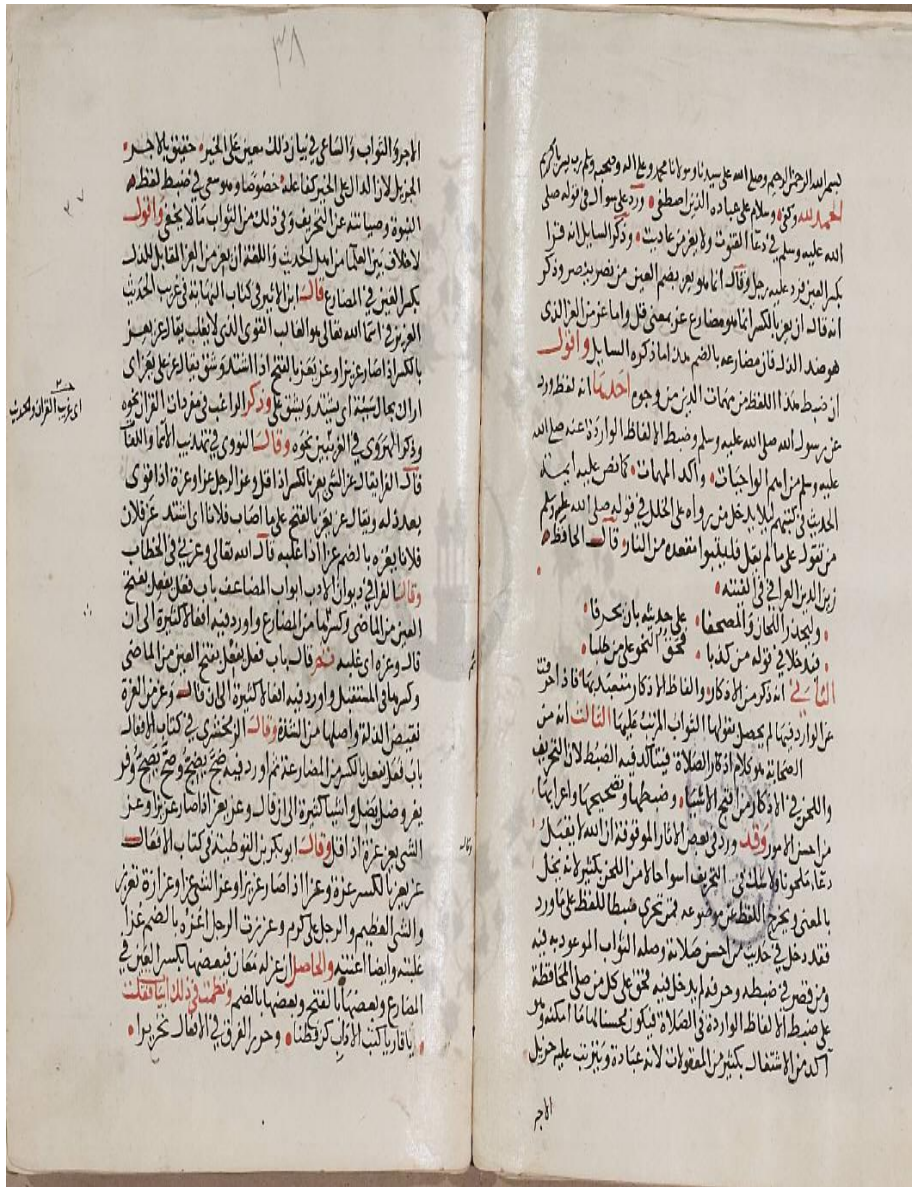 بسم الله الرحمن الرحيم وصلى الله على سيدنا ومولانا محمد وعلى اله وصحبه وسلم رب يسر يا كريم
الحمد لله وكفى وسلام على عباده الذين اصطفى ورد على سوال في قوله صلى
الله عليه وسلم في دعا القنوت ولا يعز من عاديت وذكر السايل انه قرا
بكسر العين فرد عليه رجل وقال انما هو يعز بضم العين من نصر ينصر وذكر
انه قال ان يعز بالكسر انما هو مضارع عز بمعنى قل واما عز من العز الذي
هو ضد الذل فان مضارعه بالضم هذا ما ذكره السايل واقول
ان ضبط هذا اللفظ من مهمات الدين من وجوه احدها انه لفظ ورد
عن رسول الله صلى الله عليه وسلم وضبط الالفاظ الواردة عنه صلى الله
عليه وسلم من اهم الواجبات وأكد المهمات كما نص عليه ايمة
الحديث في كتبهم ليلا يدخل من رواه على الخلل في قوله صلى الله عليه وسلم
من تقول على ما لم يقل فليتبوا مقعده من النار وقال الحافظ
زين الدين العراقي في الفيته
وليحذر اللحان والمصحفا على حديثه بان يحرفا
فيدخلا في قوله من كذبا فحق النحو على من طلبا
الثاني انه ذكر من الاذكار والفاظ الاذكار متعبد بها فاذا حرفت
عن الوارد فيها لم يحصل بقولها الثواب المرتب عليها الثالث انه من
اذكار الصلاة فيتاكد فيه الضبط لان التحريف
واللحن في الاذكار من اقبح الاشيا وضبطها وتصحيحها واعرابها
من احسن الامور وقد ورد في بعض الاثار الموقوفة ان الله لا يقبل
دعا ملحونا ولا شك في التحريف اسوا حالا من اللحن بكثير لانه يخل
بالمعنى ويخرج اللفظ عن موضوعه فمن تحرى ضبط اللفظ على ما ورد
فقد دخل في حديث من احسن صلاته وصله الثواب الموعود به فيه
ومن قصر في ضبطه وحرفه لم يدخل فيه فحق على كل من صلى المحافظة
على ضبط الالفاظ الواردة في الصلاة فيكون محسنا لها ما امكنه وهو
آكد من الاشتغال بكثير من المعقولات لانه عبادة ويترتب عليه جزيل
الاجر
٣٨
الاجر والثواب والساعي في بيان ذلك معين على الخير حقيق بالاجر
الجزيل لان الدال على الخير كفاعله خصوصا وهو سعي في ضبط لفظ
النبوة وصيانته عن التحريف وفي ذلك من الثواب ما لا يخفى واقول
لا خلاف بين العلما من اهل الحديث واللغة ان يعز من العز المقابل للذل
بكسر العين في المضارع قال ابن الاثير في كتاب النهاية في غريب الحديث
العزيز في اسما الله تعالى هو الغالب القوي الذي لا يغلب يقال عز يعز
بالكسر اذا صار عزيزا وعز يعز بالفتح اذا اشتد وشق يقال عز علي يعز اي
اراك بحال سيئة اي يشتد ويشق علي وذكر الراغب في مفردات القران نحوه
وذكر الهروي في الغريبين نحوه وقال النووي في تهذيب الاسما واللغات
قال الفرا يقال عز الشي يعز بالكسر اذا قل وعز الرجل عزا وعزة اذا قوي
بعد ذله ويقال عز يعز بالفتح على ما اصاب فلانا اي اشتد عز فلان
فلانا يعزه بالضم عزا اذا غلبه قال الله تعالى وعزني في الخطاب
وقال الفرابي في ديوان الادب ابواب المضاعف باب فعل يفعل بفتح
العين من الماضي وكسرها من المضارع واورد فيه افعالا كثيرة الى ان
قال وعزه اي غلبه ثم قال باب فعل يفعل بفتح العين من الماضي
وكسرها في المستقبل واورد فيه افعالا كثيرة الى ان قال وعز من العزة
نقيض الذلة واصلها من الشدة وقال الزمخشري في كتاب الافعال
باب فعل يفعل بالكسر من المضارعة ثم اورد فيه ضج يضج وصح يصح وفر
يفر وضل يضل واشيا كثيرة الى ان قال وعز يعز اذا صار عزيزا وعز
الشي يعز عزة اذا قل وقال ابو بكر بن القوطية في كتاب الافعال
عز يعز بالكسر عزة وعزا اذا صار عزيزا وعز الشي عزا وعزازة تعزز
والشي العظيم والرجل علي كرم وعززت الرجل اعزه بالضم عزا
غلبته وايضا اعنته والحاصل ان عز له معان فبعضها بكسر العين في
المضارع وبعضها بالفتح وبعضها بالضم ونظمت في ذلك ابياتا فقلت
يا قاريا كتب الاداب كن يقظا وحرر الفرق في الافعال تحريرا
اي غريب القران والحديث